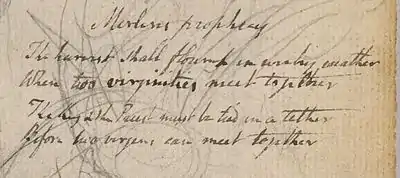 Merlins prophecy
The harvest shall flourish in wintry weather
When two virginities meet together
The King & the Priest must be tied in a tether
Before two virgins can meet together